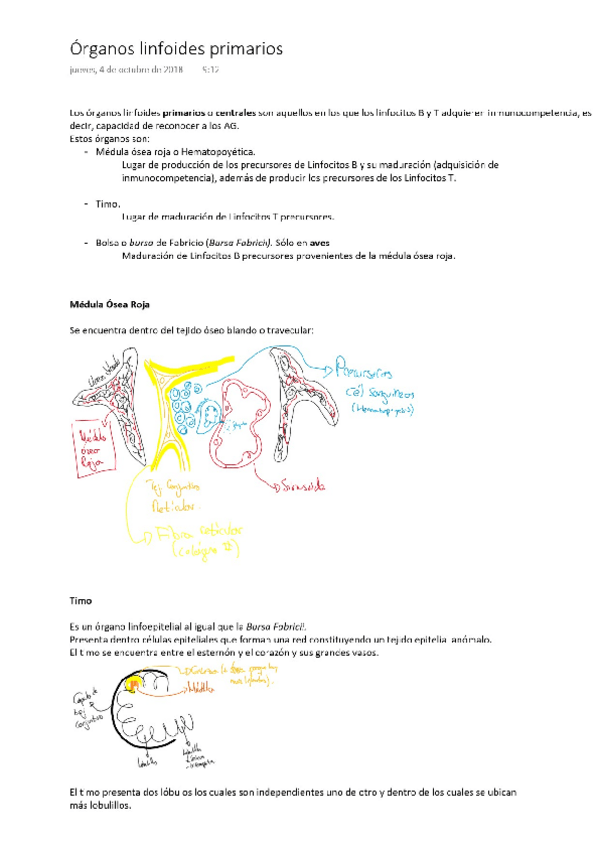 Órganos linfoides primarios
jueves, 4 de octubre de 2018 9:12
Los órganos linfoides primarios o centrales son aquellos en los que los linfocitos B y T adquieren inmunocompetencia, es
decir, capacidad de reconocer a los AG.
Estos órganos son:
- Médula ósea roja o Hematopoyética.
Lugar de producción de los precursores de Linfocitos B y su maduración (adquisición de
inmunocompetencia), además de producir los precursores de los Linfocitos T.
- Timo.
Lugar de maduración de Linfocitos T precursores.
- Bolsa o bursa de Fabricio (Bursa Fabricii). Sólo en aves
Maduración de Linfocitos B precursores provenientes de la médula ósea roja.
Médula Ósea Roja
Se encuentra dentro del tejido óseo blando o travecular:
Precursores
Cél Sanguíneas
(Hematopoyesis)
Médula
ósea
Roja
Sinusoide
Tej. Conjuntivo
Reticular
Fibra reticular
(colágeno
Timo
Es un órgano linfoepitelial al igual que la Bursa Fabricii.
Presenta dentro células epiteliales que forman una red constituyendo un tejido epitelial anómalo.
El timo se encuentra entre el esternón y el corazón y sus grandes vasos.
Médula
Cápsula de
tej.
Conjuntivo
El timo presenta dos lóbulos los cuales son independientes uno de otro y dentro de los cuales se ubican
más lobulillos.